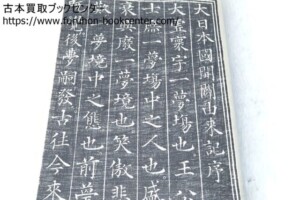 古本買取ブックセンター
https://www.furuhon-bookcenter.com/
大日本國開闢由来記序
大寰宇一夢場也王公
士庶一夢場中之人也盛
衰興廢一夢境也笑傲悲
夢境中之態也前夢
後夢嗣發古往今來